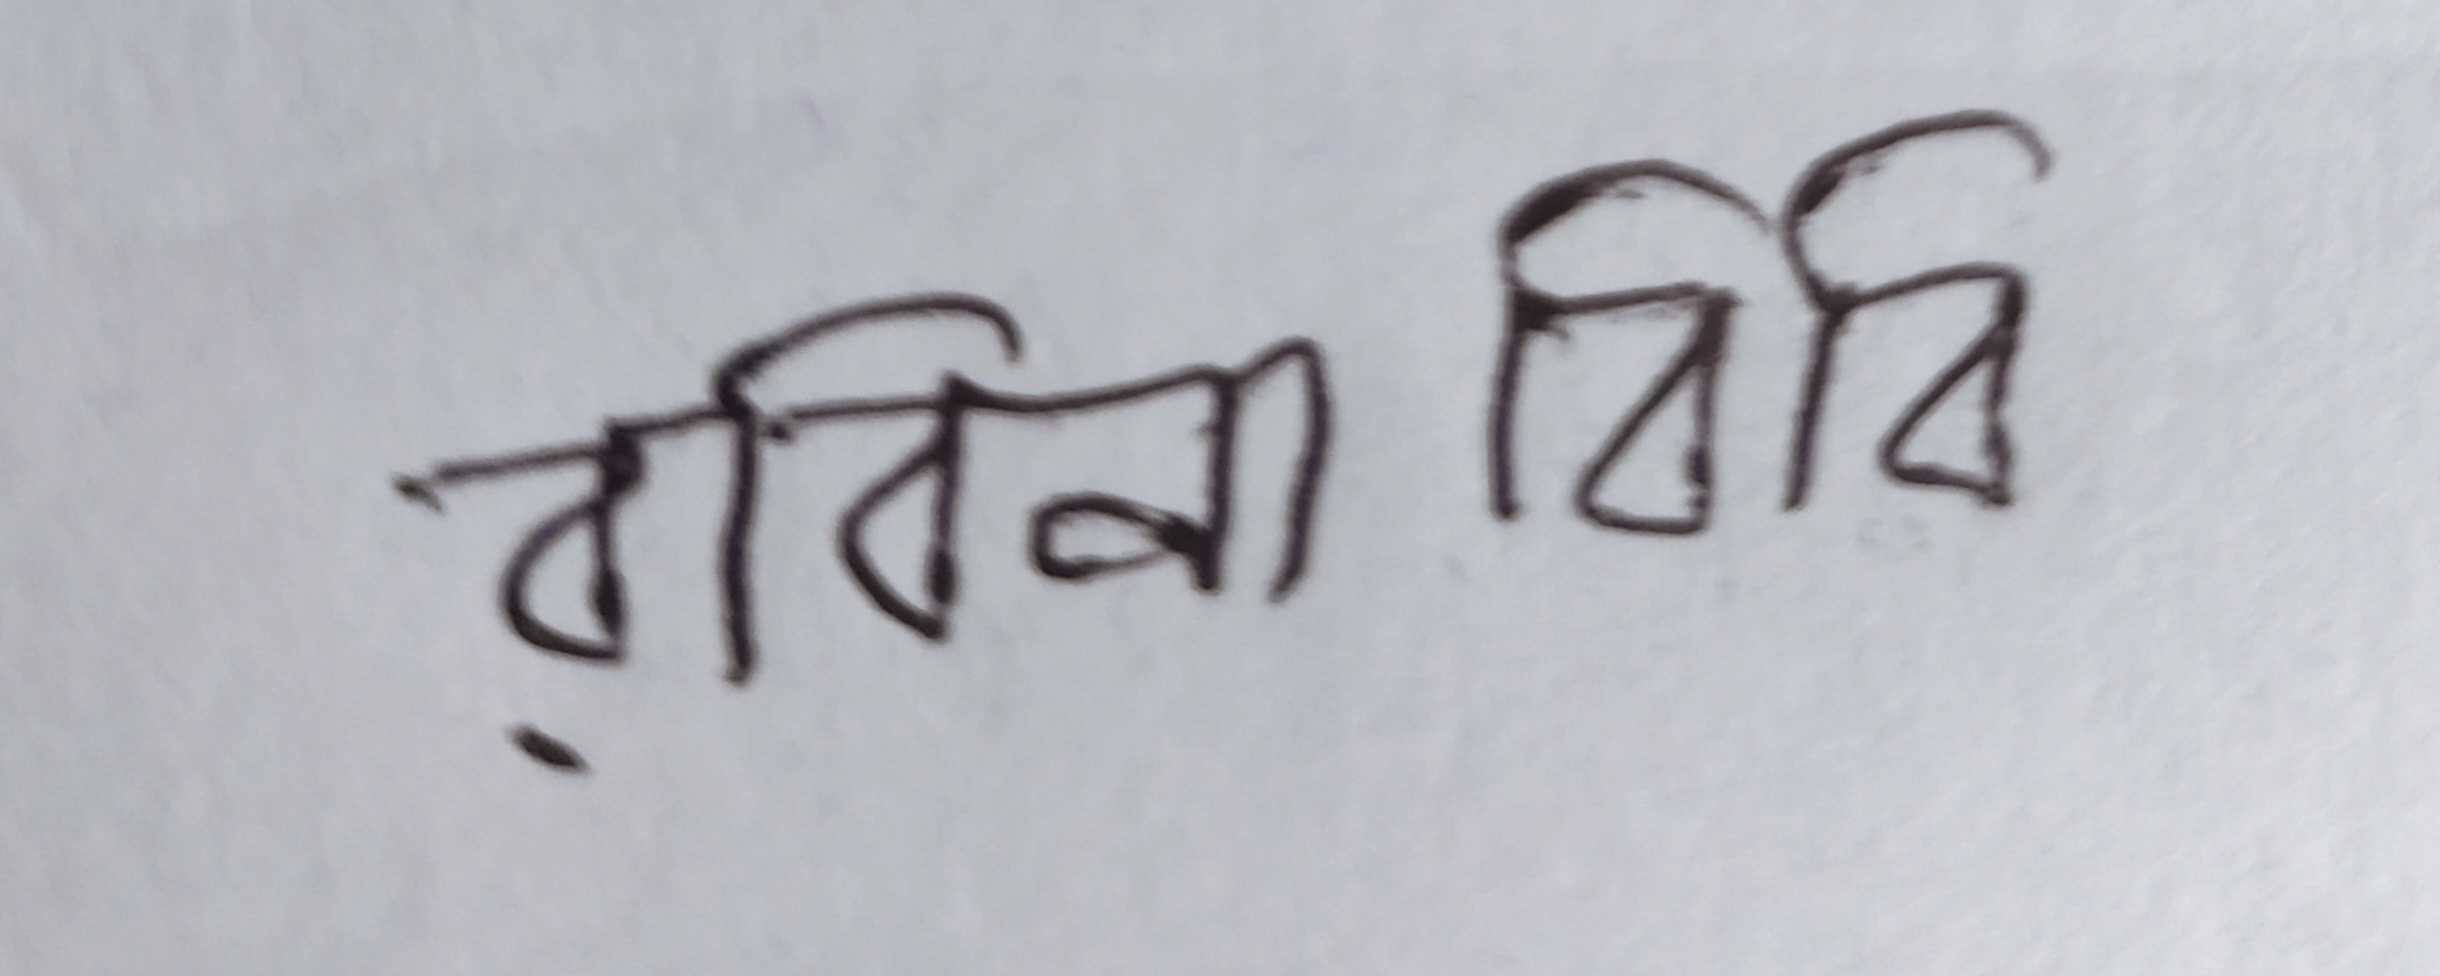 রবিনা বিবি